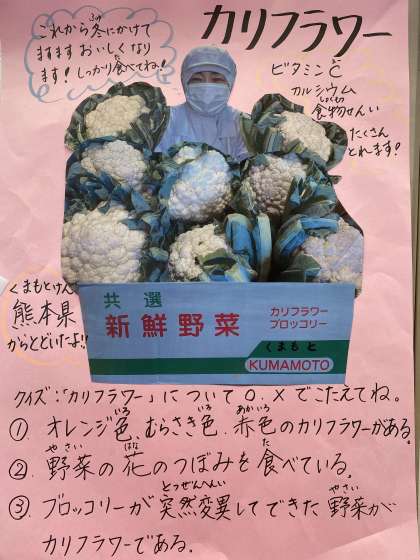 カリフラワー
これから冬にかけて
ますますおいしくなり
ます!しっかり食べてね!
ビタミンC
カルシウム
食物せんい
たくさん
とれます!
くまもとけん
熊本県
からとどいたよ!!
共選
新鮮野菜
カリフラワー
ブロッコリー
くまもと
KUMAMOTO
クイズ:「カリフラワー」について〇、×でこたえてね。
① オレンジ色、むらさき色、赤色のカリフラワーがある。
② 野菜の花のつぼみを食べている。
③ ブロッコリーが突然変異してできた野菜が
カリフラワーである。